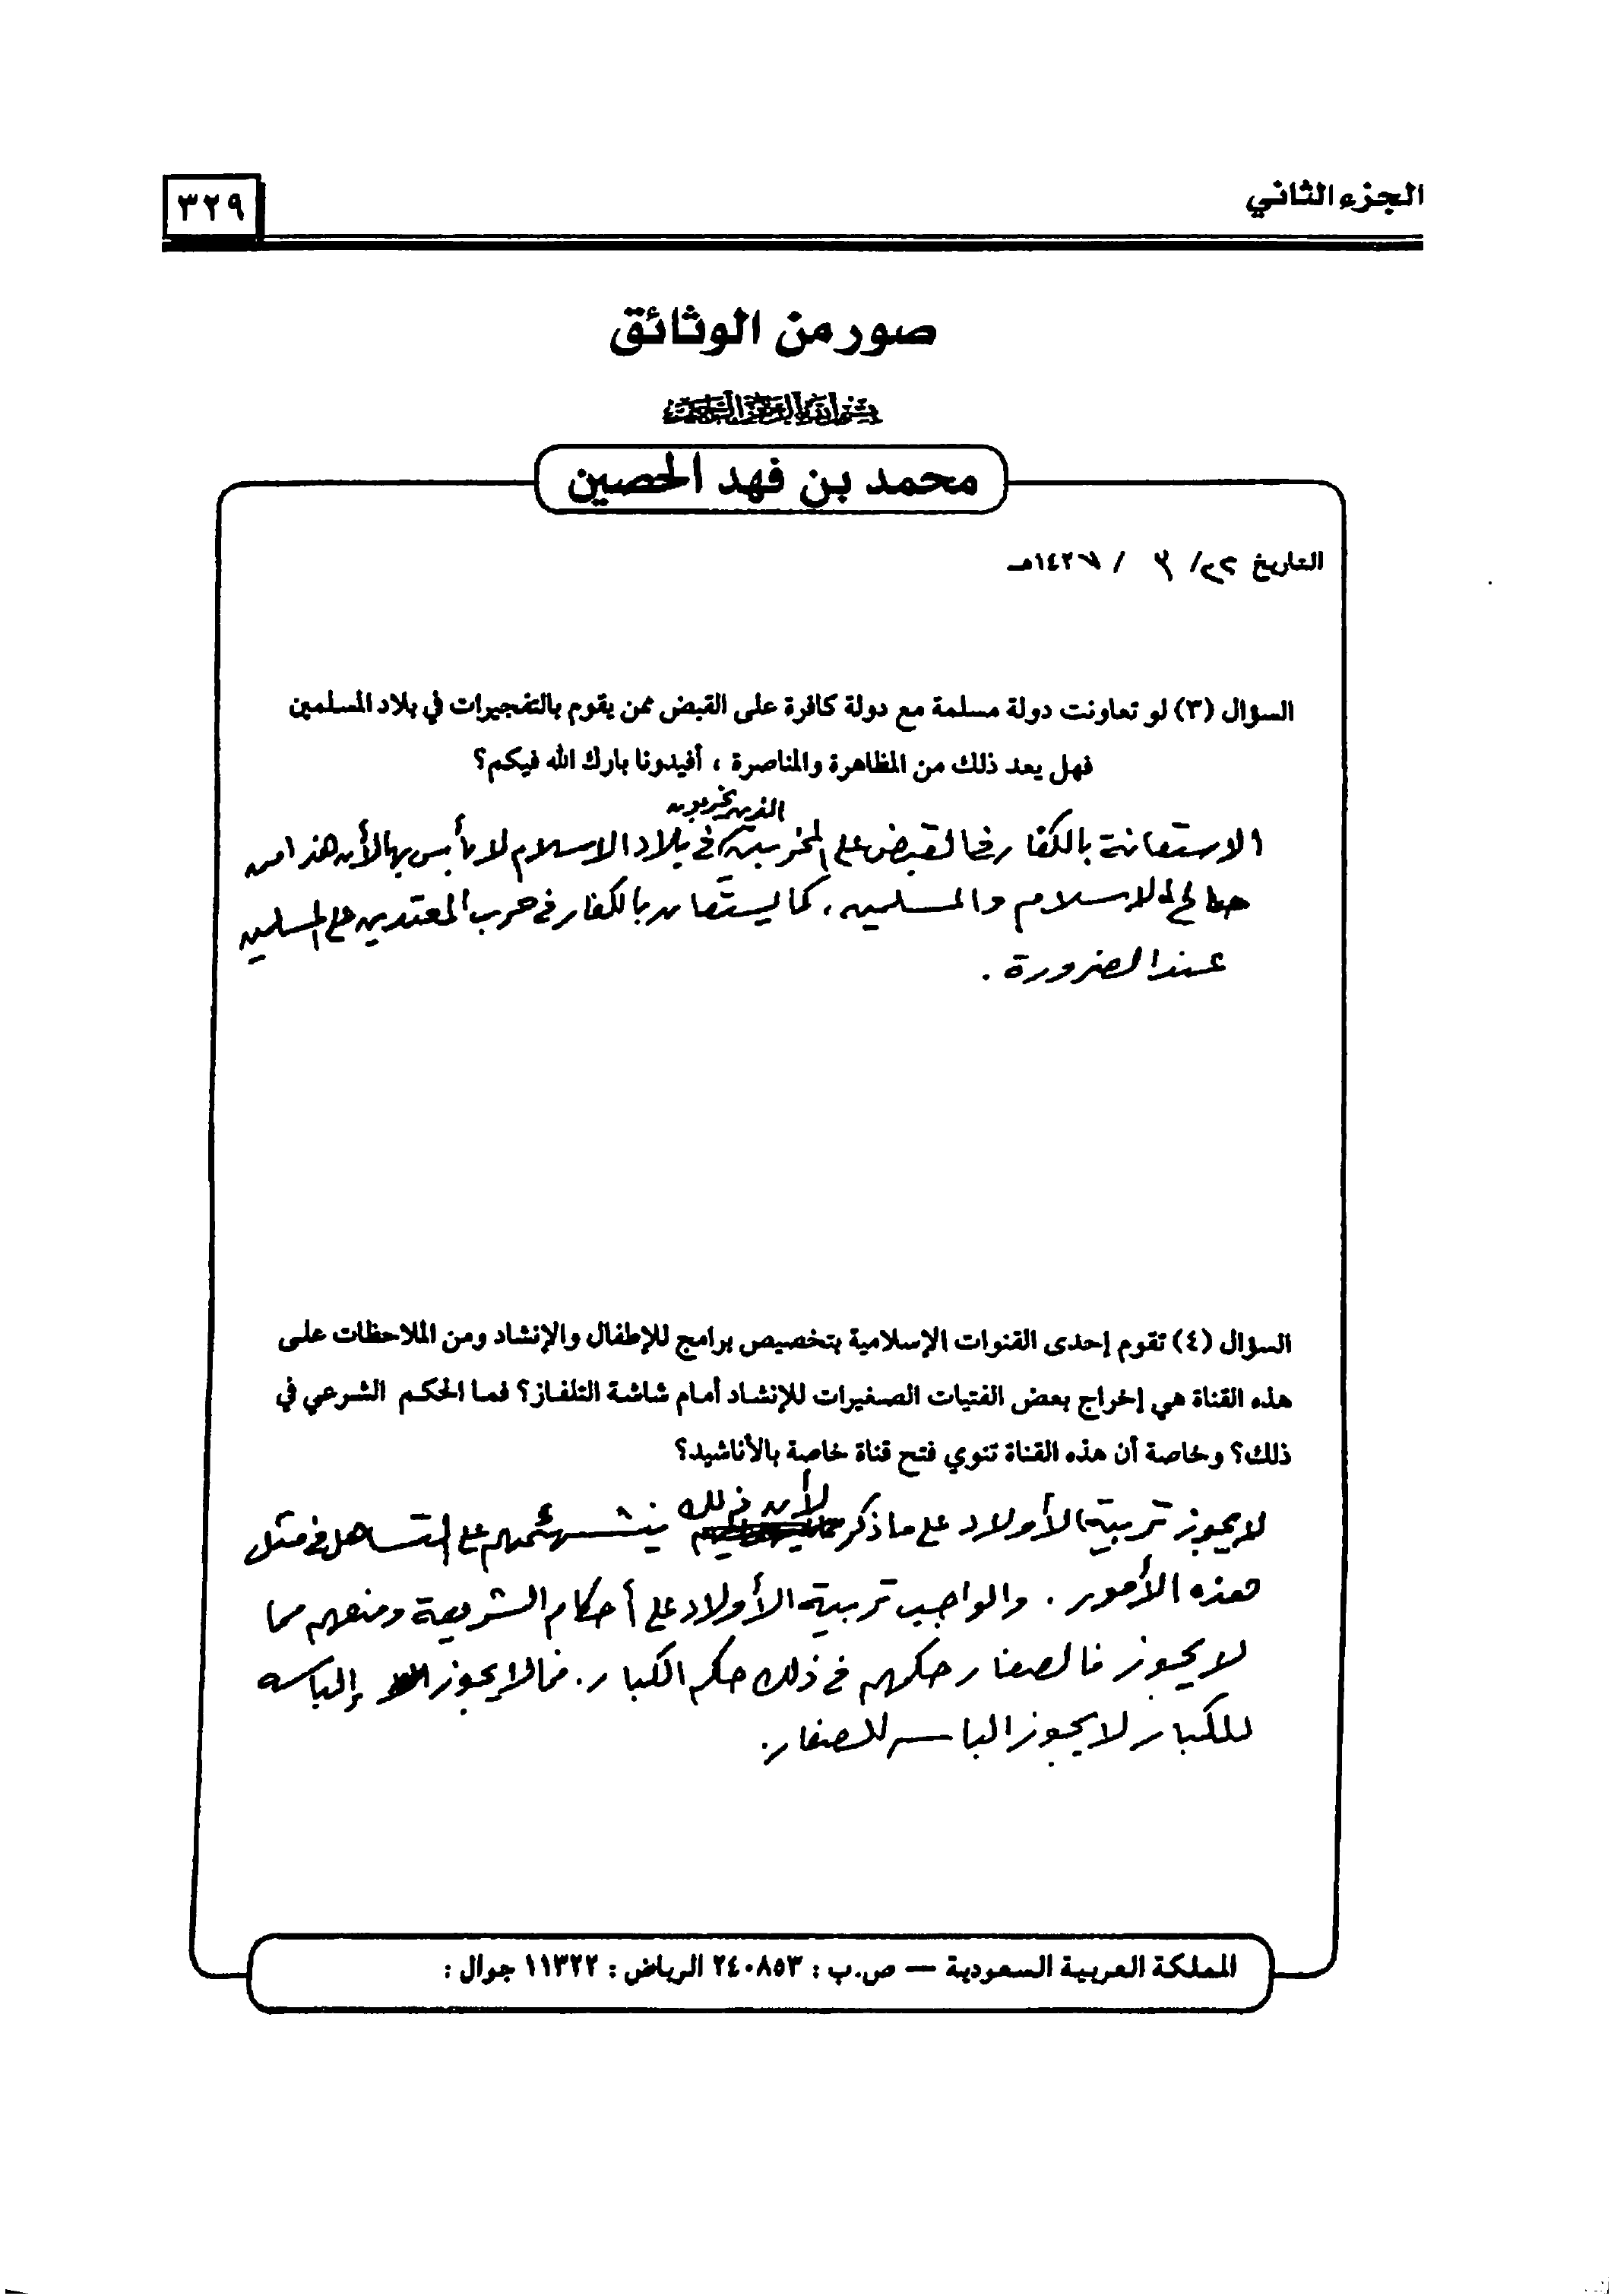 الجزء الثاني
٣٢٩
صور من الوثائق
بسم الله الرحمن الرحيم
محمد بن فهد الحصين
التاريخ / ٣ / ١٤٢٧هـ
السؤال (٣) لو تعاونت دولة مسلمة مع دولة كافرة على القبض ممن يقوم بالتفجيرات في بلاد المسلمين
فهل يعد ذلك من المظاهرة والمناصرة ، أفيدونا بارك الله فيكم؟
الذين يخربون
الاستعانة بالكفار في القبض على المخربين في بلاد الاسلام لا بأس بها لأن هذا من
صالح الاسلام والمسلمين، كما يستعان بالكفار في حرب المعتدين على المسلمين
عند الضرورة .
السؤال (٤) تقوم إحدى القنوات الإسلامية بتخصيص برامج للإطفال والإنشاد ومن الملاحظات على
هذه القناة هي إخراج بعض الفتيات الصغيرات للإنشاد أمام شاشة التلفاز؟ فما الحكم الشرعي في
ذلك؟ وخاصة أن هذه القناة تنوي فتح قناة خاصة بالأناشيد؟
لا يجوز تربية الأولاد على ما ذكر لأن ذلك ينشئهم على التساهل في مثل
هذه الأمور . والواجب تربية الأولاد على أحكام الشريعة ومنعهم مما
لا يجوز فالصغار حكمهم في ذلك حكم الكبار . فما لا يجوز إلباسه
للكبار لا يجوز الباسه للصغار.
المملكة العربية السعودية – ص.ب : ٢٤٠٨٥٣ الرياض : ١١٣٢٢ جوال :